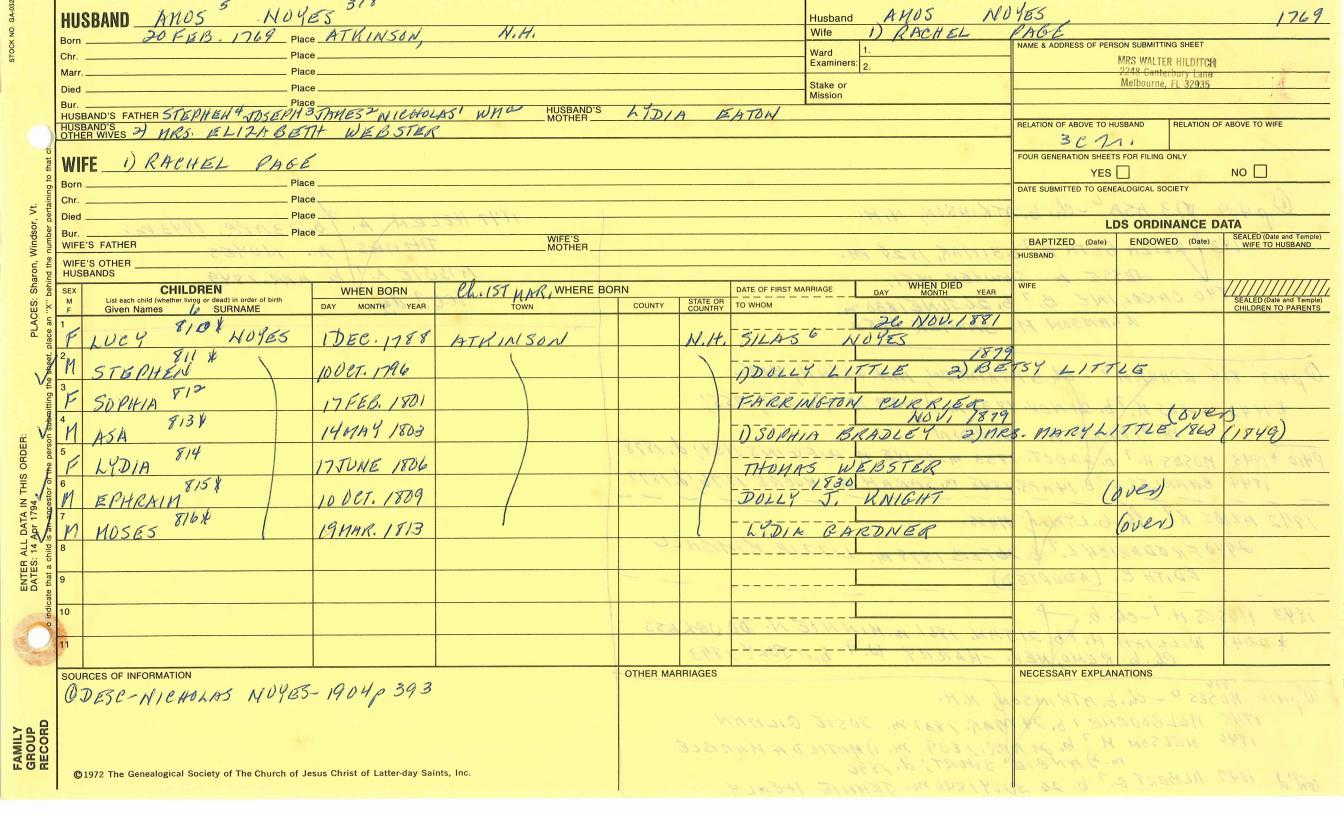 STOCK NO. GA-002
HUSBAND AMOS 5 NOYES 378
Born 20 FEB. 1769 Place ATKINSON, N.H.
Chr. Place
Marr. Place
Died Place
Bur. Place
HUSBAND'S FATHER STEPHEN4 JOSEPH3 JAMES2 NICHOLAS1 WMa HUSBAND'S MOTHER LYDIA EATON
HUSBAND'S OTHER WIVES 2) MRS. ELIZABETH WEBSTER
WIFE 1) RACHEL PAGE
Born Place
Chr. Place
Died Place
Bur. Place
WIFE'S FATHER WIFE'S MOTHER
WIFE'S OTHER HUSBANDS
Husband AMOS NOYES 1769
Wife 1) RACHEL PAGE
Ward Examiners: 1.
2.
Stake or Mission
NAME & ADDRESS OF PERSON SUBMITTING SHEET
MRS WALTER HILDITCH
2248 Canterbury Lane
Melbourne, FL 32935
RELATION OF ABOVE TO HUSBAND RELATION OF ABOVE TO WIFE
FOUR GENERATION SHEETS FOR FILING ONLY
YES NO
DATE SUBMITTED TO GENEALOGICAL SOCIETY
LDS ORDINANCE DATA
BAPTIZED (Date) ENDOWED (Date) SEALED (Date and Temple) WIFE TO HUSBAND
HUSBAND
WIFE
SEALED (Date and Temple) CHILDREN TO PARENTS
SEX M F CHILDREN WHEN BORN Ch. 1ST MAR, WHERE BORN DATE OF FIRST MARRIAGE WHEN DIED
List each child (whether living or dead) in order of birth DAY MONTH YEAR TOWN COUNTY STATE OR COUNTRY TO WHOM DAY MONTH YEAR
Given Names 6 SURNAME
1 F LUCY 810* NOYES 1 DEC. 1788 ATKINSON N.H. SILAS6 NOYES 26 NOV. 1881
2 M STEPHEN 811 * 10 OCT. 1796 1) DOLLY LITTLE 2) BETSY LITTLE 1879
3 F SOPHIA 812 17 FEB. 1801 FARRINGTON CURRIER
4 M ASA 813* 14 MAY 1803 1) SOPHIA BRADLEY 2) MRS. MARY LITTLE 1860 (1849) NOV. 1879 (over)
5 F LYDIA 814 17 JUNE 1806 THOMAS WEBSTER
6 M EPHRAIM 815* 10 OCT. 1809 1830 DOLLY J. KNIGHT (over)
7 M MOSES 816* 19 MAR. 1813 LYDIA GARDNER (over)
8
9
10
11
SOURCES OF INFORMATION OTHER MARRIAGES NECESSARY EXPLANATIONS
① DESC-NICHOLAS NOYES-1904 p 393
©1972 The Genealogical Society of The Church of Jesus Christ of Latter-day Saints, Inc.
ENTER ALL DATA IN THIS ORDER:
DATES: 14 Apr 1794
PLACES: Sharon, Windsor, Vt.
To indicate that a child is an ancestor of the person submitting the sheet, place an "X" behind the number pertaining to that
FAMILY GROUP RECORD